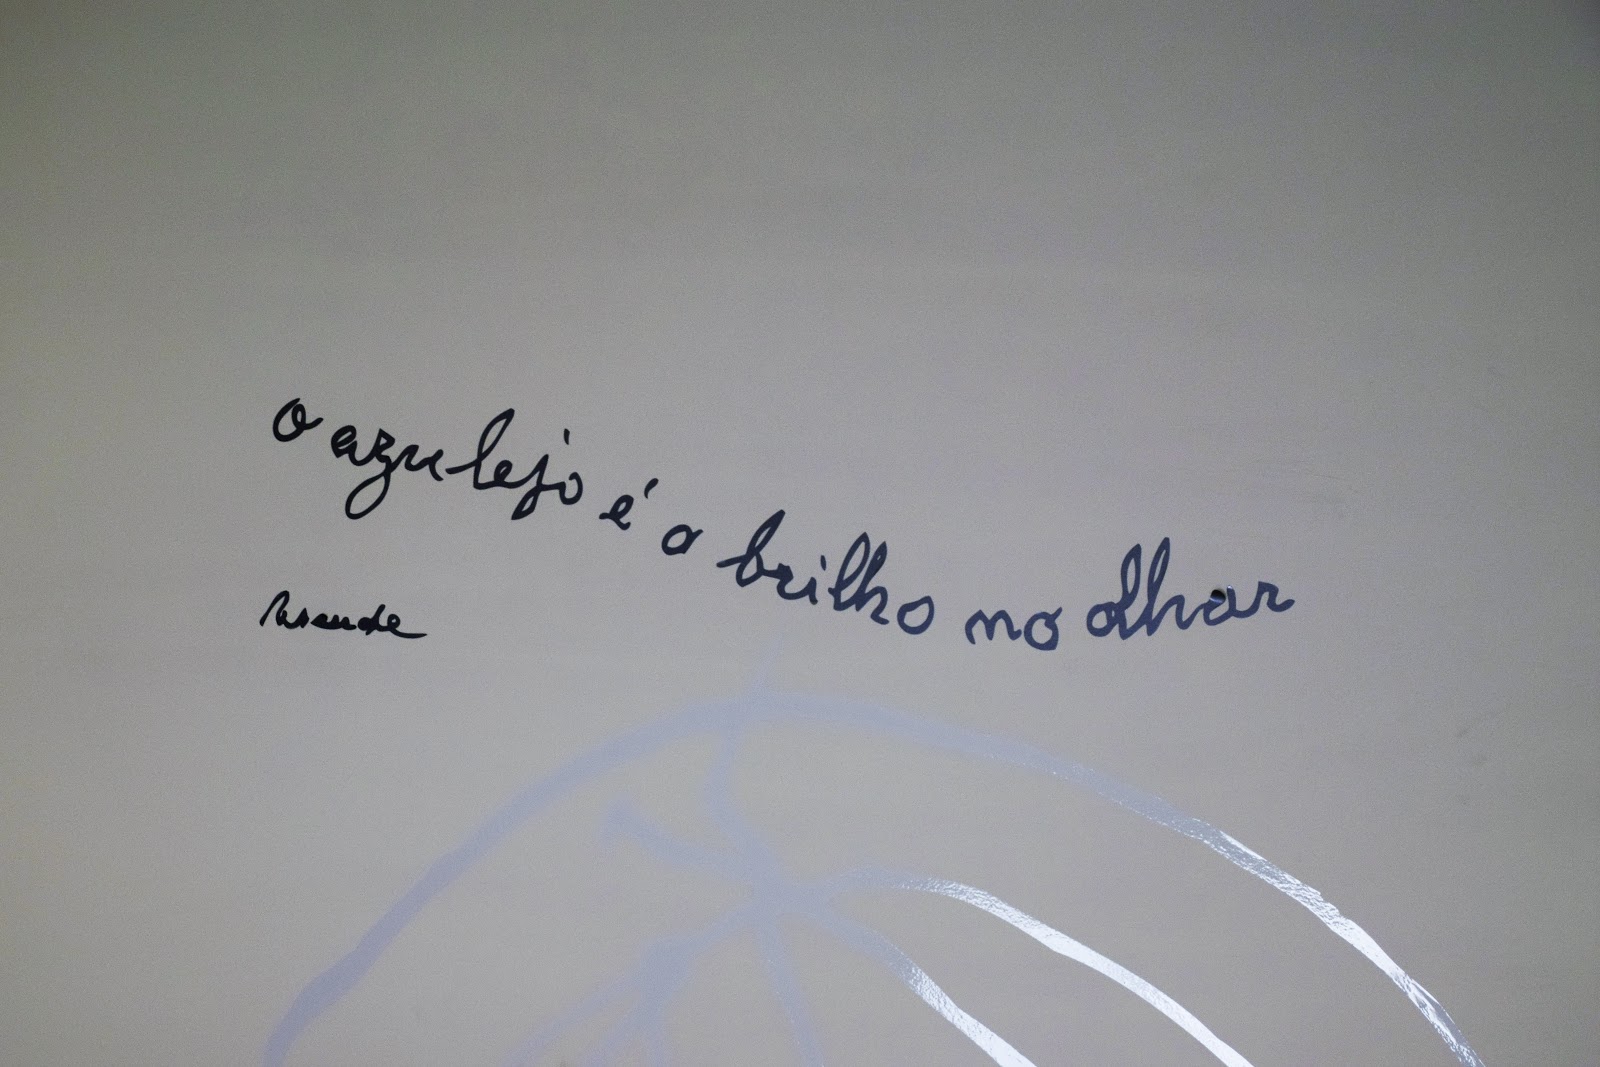 o azulejo é o brilho no olhar
Resende